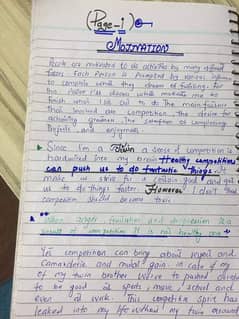 (Page-1)
MOTIVATION
People are motivated to do activities by many different
factors. Each Person is Prompted by various
to complete
finish what I set out to do. The main factors
that motivate are competition, the desire for
achieving greatness, the satisfaction of completing
projects and enjoyment.
Since I'm a twin a sense of competition is
hardwired into my brain Healthy competitions
can push us to do fantastic things.
make us strive for a common goal and get
us to do things faster. However I don't think
competition should become toxic
When anger, frustration and depression is a
result of competition it is not healthy
Yet competition can bring about respect and
camaraderie and mutual gain in case of my
of my twin brother we're to pushed
to be good at sports, music, school and
even at work. This competitive spirit has
leaked into my life without my twin around